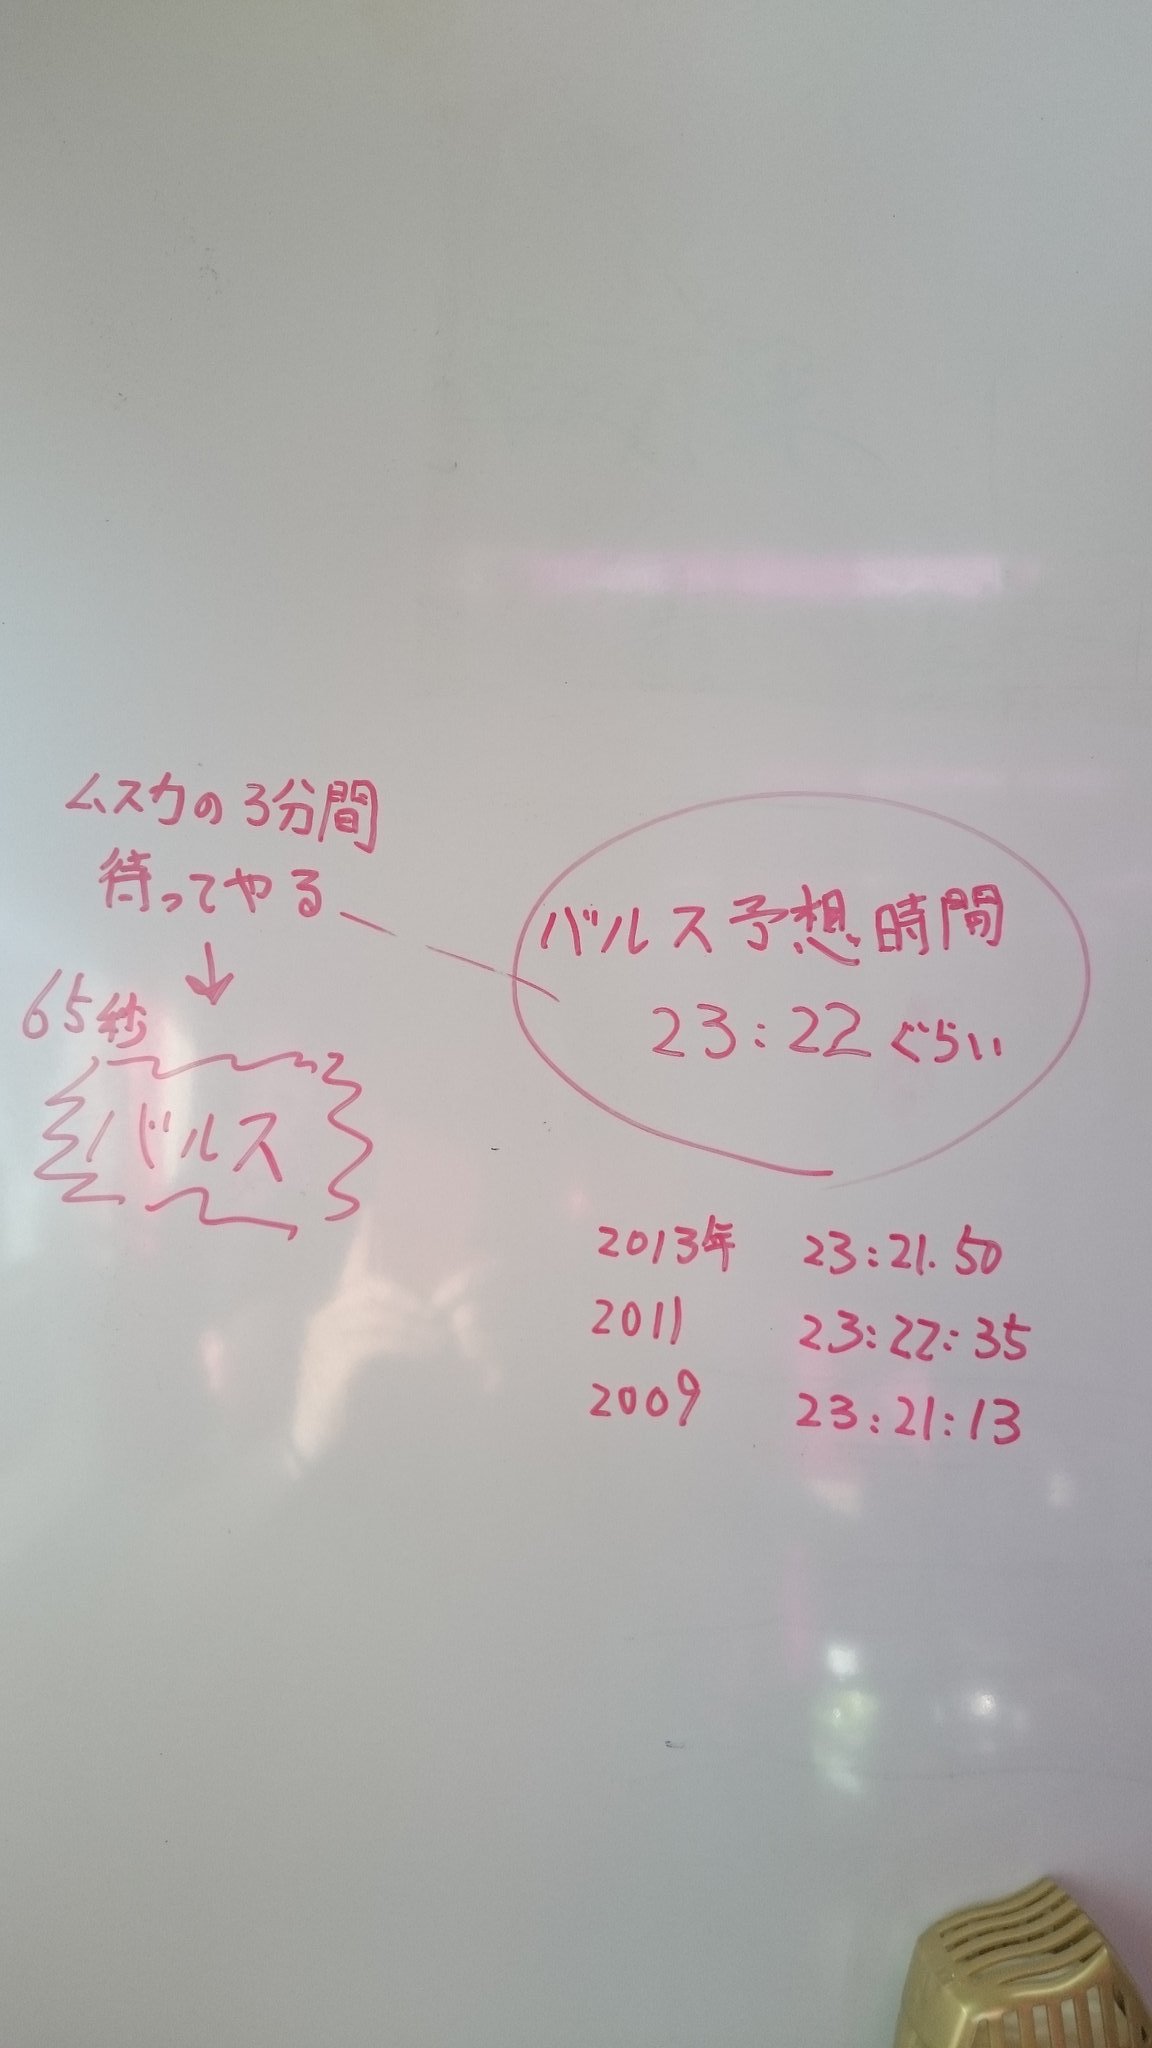 ムスカの3分間
待ってやる
↓
65秒
バルス
バルス予想時間
23:22ぐらい
2013年 23:21.50
2011 23:22:35
2009 23:21:13